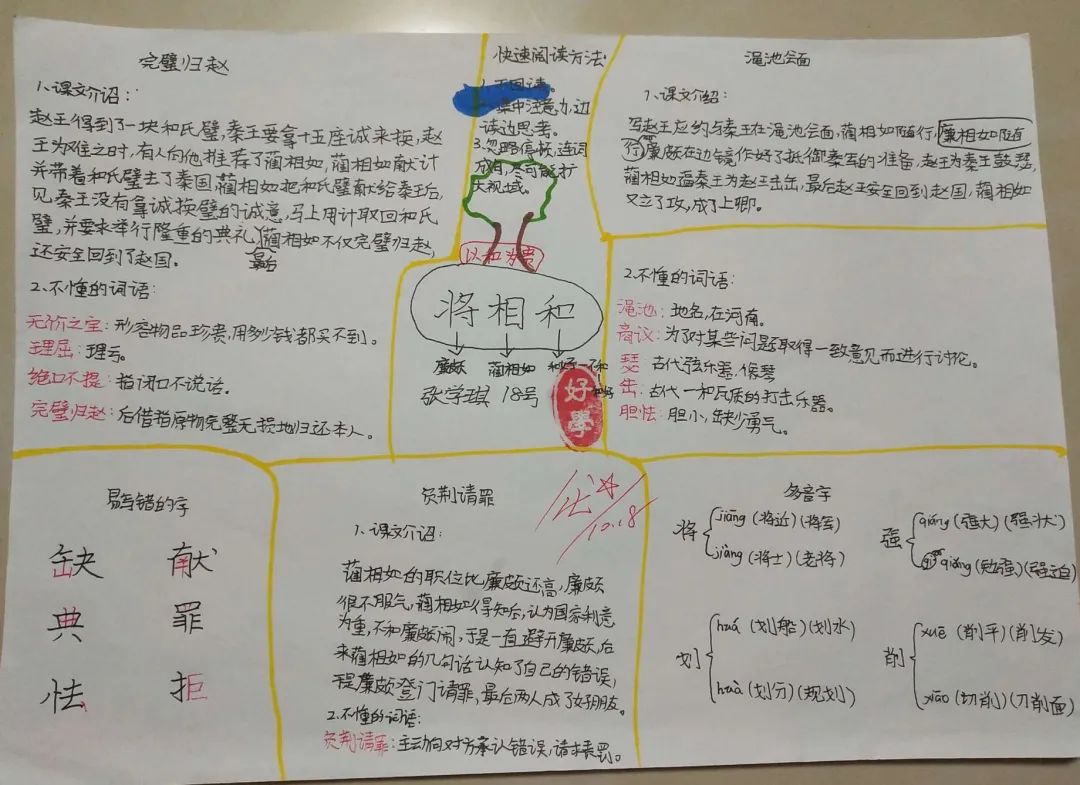 完璧归赵
1、课文介诏：
赵王得到了一块和氏璧,秦王要拿十五座诚来换,赵
王为难之时,有人向他推荐了蔺相如,蔺相如献计
并带着和氏璧去了秦国,蔺相如把和氏璧献给秦王后,
见秦王没有拿诚换璧的诚意,马上用计取回和氏
璧,并要求举行隆重的典礼,蔺相如不仅完璧归赵,
最后
还安全回到了赵国。
2、不懂的词语：
无价之宝：形容物品珍贵,用多少钱都买不到。
理屈：理亏。
绝口不提：指闭口不说话。
完璧归赵：后借指原物完整无损地归还本人。
快速阅读方法
1、不回读。
2、集中注意力,边
读边思考。
3、忽略停顿,连词
成句,尽可能扩
大视域。
以和为贵
将相和
廉颇 蔺相如 和好—不和
和好
张学琪 18号
好學
渑池会面
1、课文介绍：
写赵王应约与秦王在渑池会面,蔺相如随行,廉相如随
行廉颇在边境作好了抵御秦军的准备,赵王为秦王鼓瑟,
蔺相如逼秦王为赵王击缶,最后赵王安全回到赵国,蔺相如
又立了攻,成了上卿。
2.不懂的词语：
渑池：地名,在河南。
商议：为了对某些问题取得一致意见而进行讨论。
瑟：古代弦乐器,像琴
缶：古代一种瓦质的打击乐器。
胆怯：胆小,缺少勇气。
易写错的字
缺 献
典 罪
怯 拒
负荆请罪
优
10.18
1、课文介诏：
蔺相如的职位比廉颇还高,廉颇
很不服气,蔺相如得知后,认为国家利意
为重,不和廉颇闹,于是一直避开廉颇,后
来蔺相如的几句话认知了自己的错误,
是廉颇登门请罪,最后两人成了好朋友。
2.不懂的词语：
负荆请罪：主动向对方承认错误,请求责罚。
多音字
将 jiāng (将近)(将军)
jiàng (将士)(老将)
强 qiáng (强大)(强壮)
qiǎng (勉强)(强迫)
划 huá (划船)(划水)
huà (划分)(规划)
削 xuē (削平)(削发)
xiāo (切削)(刀削面)